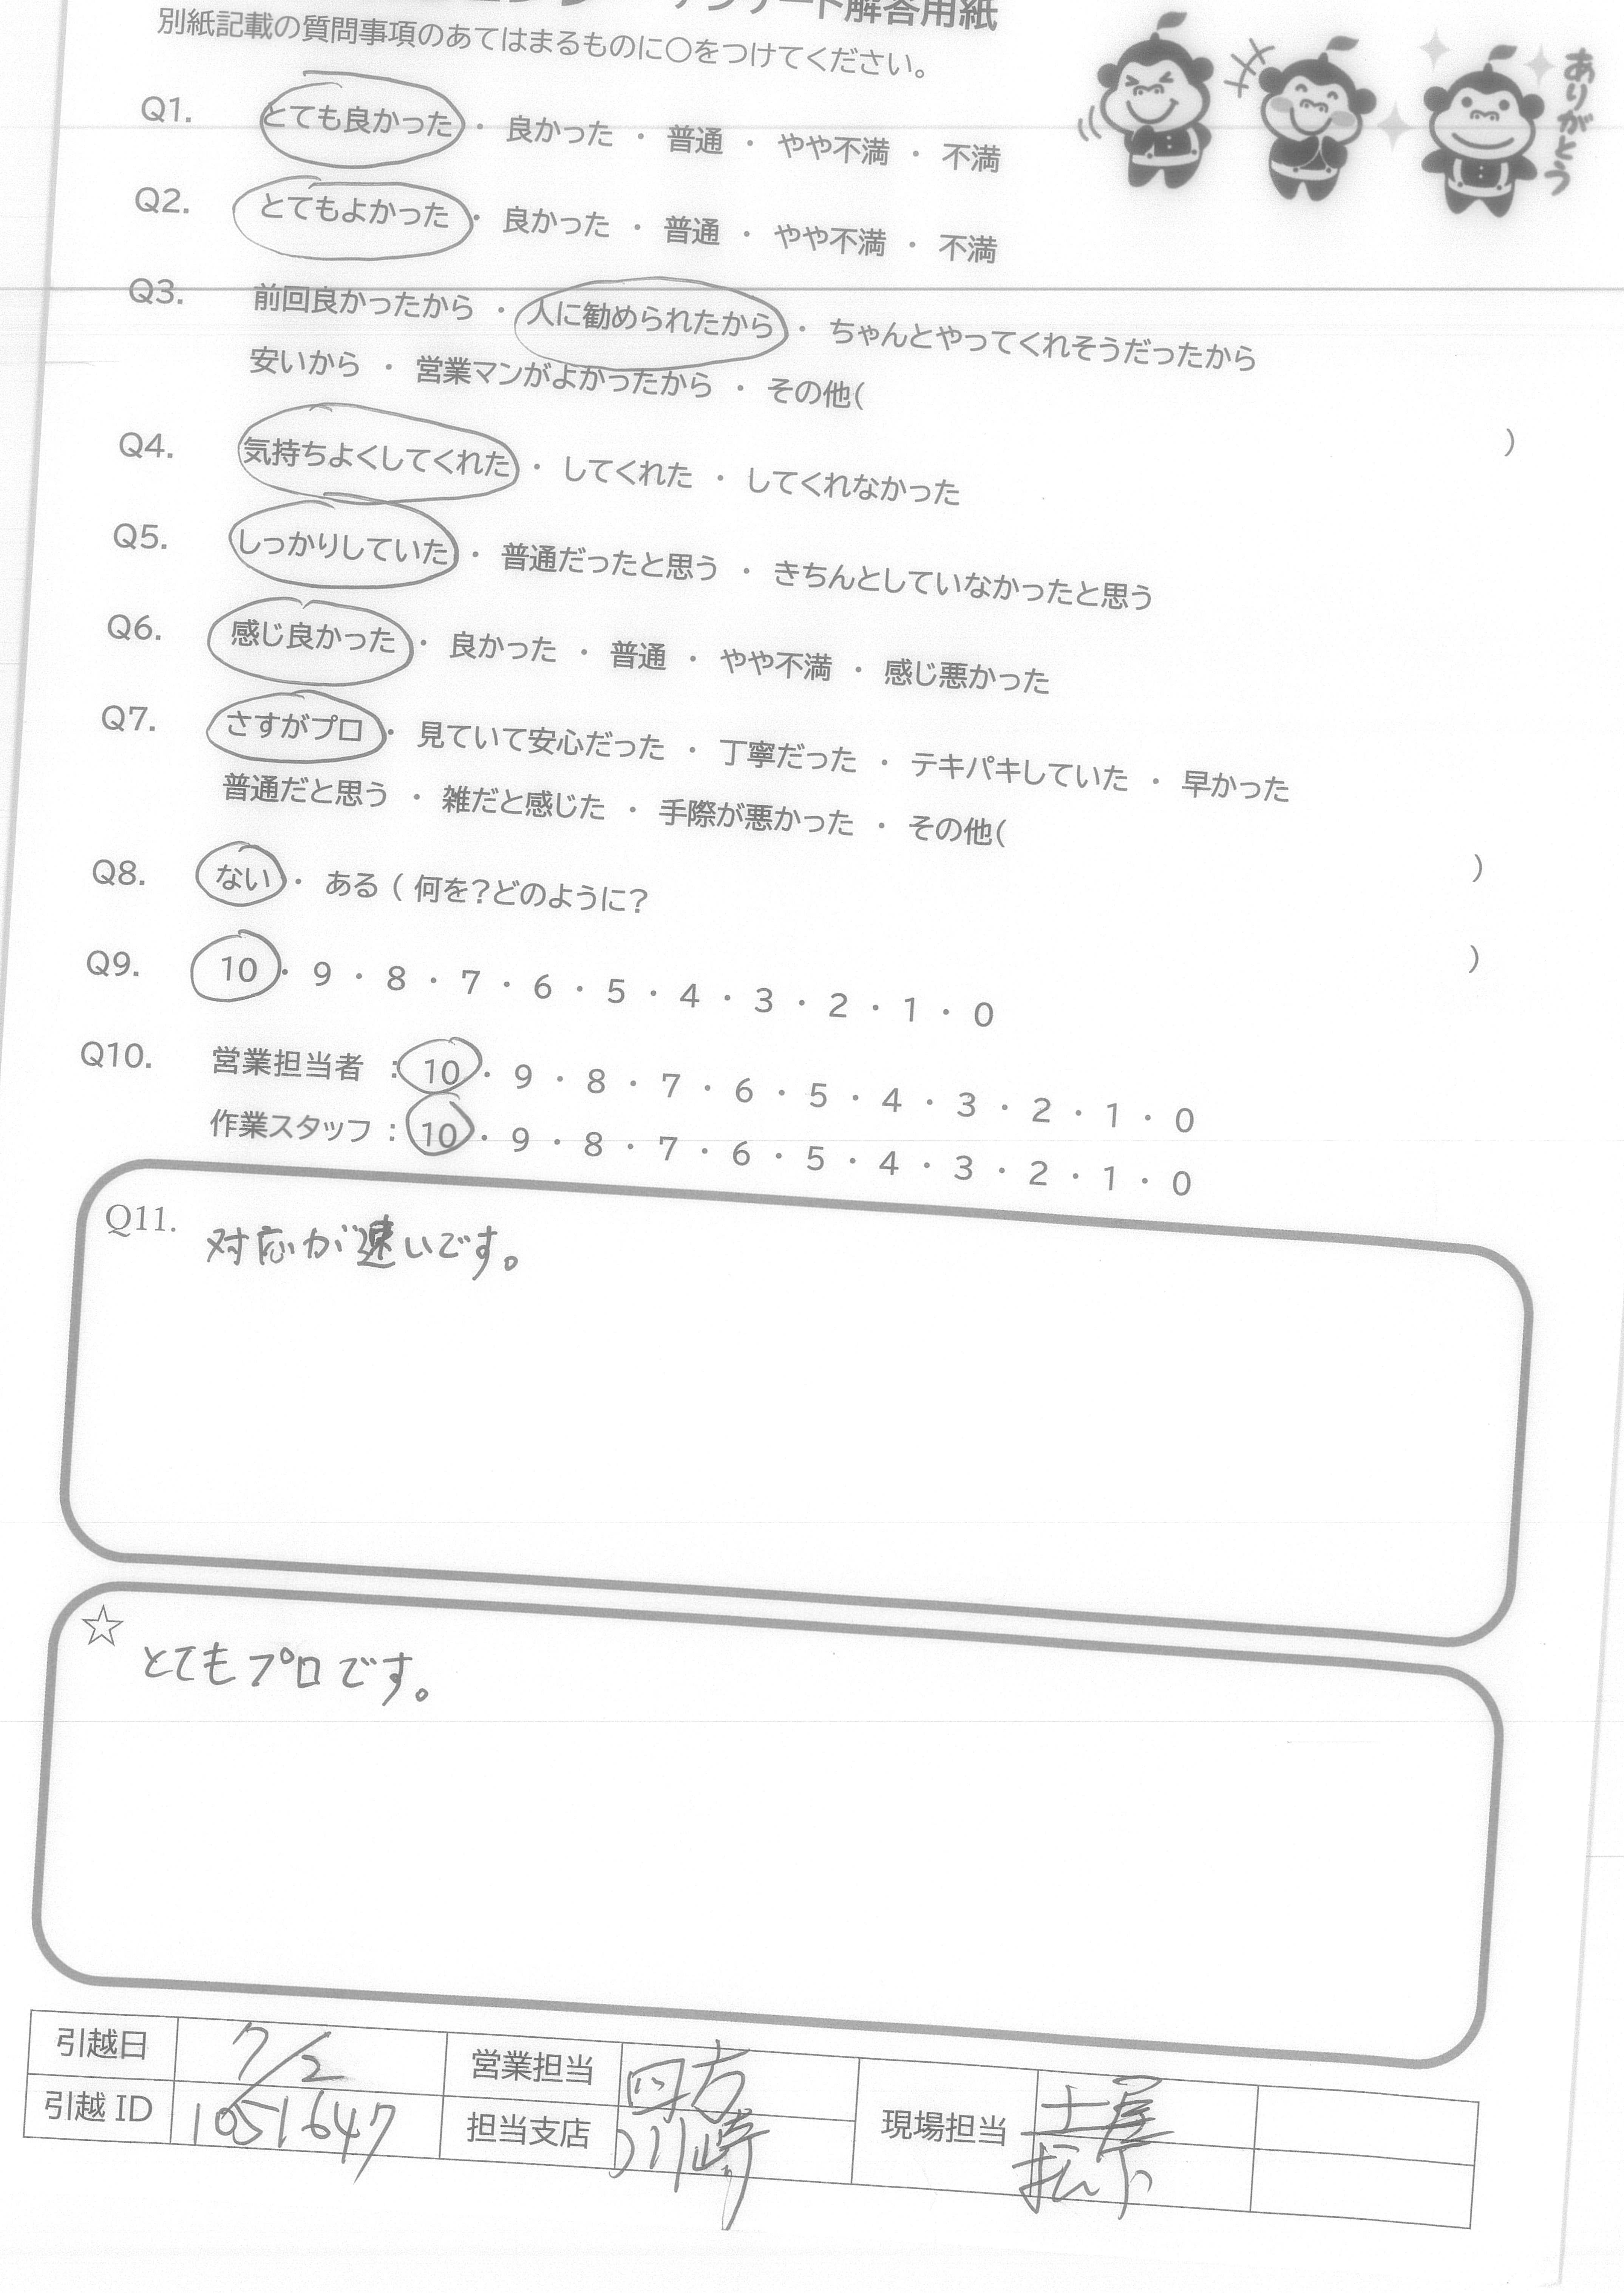 アンケート解答用紙
別紙記載の質問事項のあてはまるものに○をつけてください。
ありがとう
Q1. とても良かった ・ 良かった ・ 普通 ・ やや不満 ・ 不満
Q2. とてもよかった ・ 良かった ・ 普通 ・ やや不満 ・ 不満
Q3. 前回良かったから ・ 人に勧められたから ・ ちゃんとやってくれそうだったから
安いから ・ 営業マンがよかったから ・ その他( )
Q4. 気持ちよくしてくれた ・ してくれた ・ してくれなかった
Q5. しっかりしていた ・ 普通だったと思う ・ きちんとしていなかったと思う
Q6. 感じ良かった ・ 良かった ・ 普通 ・ やや不満 ・ 感じ悪かった
Q7. さすがプロ ・ 見ていて安心だった ・ 丁寧だった ・ テキパキしていた ・ 早かった
普通だと思う ・ 雑だと感じた ・ 手際が悪かった ・ その他( )
Q8. ない ・ ある ( 何を?どのように? )
Q9. 10 ・ 9 ・ 8 ・ 7 ・ 6 ・ 5 ・ 4 ・ 3 ・ 2 ・ 1 ・ 0
Q10. 営業担当者 : 10 ・ 9 ・ 8 ・ 7 ・ 6 ・ 5 ・ 4 ・ 3 ・ 2 ・ 1 ・ 0
作業スタッフ : 10 ・ 9 ・ 8 ・ 7 ・ 6 ・ 5 ・ 4 ・ 3 ・ 2 ・ 1 ・ 0
Q11. 対応が速いです。
☆ とてもプロです。
引越日 7/2 営業担当 四方 現場担当 土屋
引越 ID 1051647 担当支店 川崎 松下